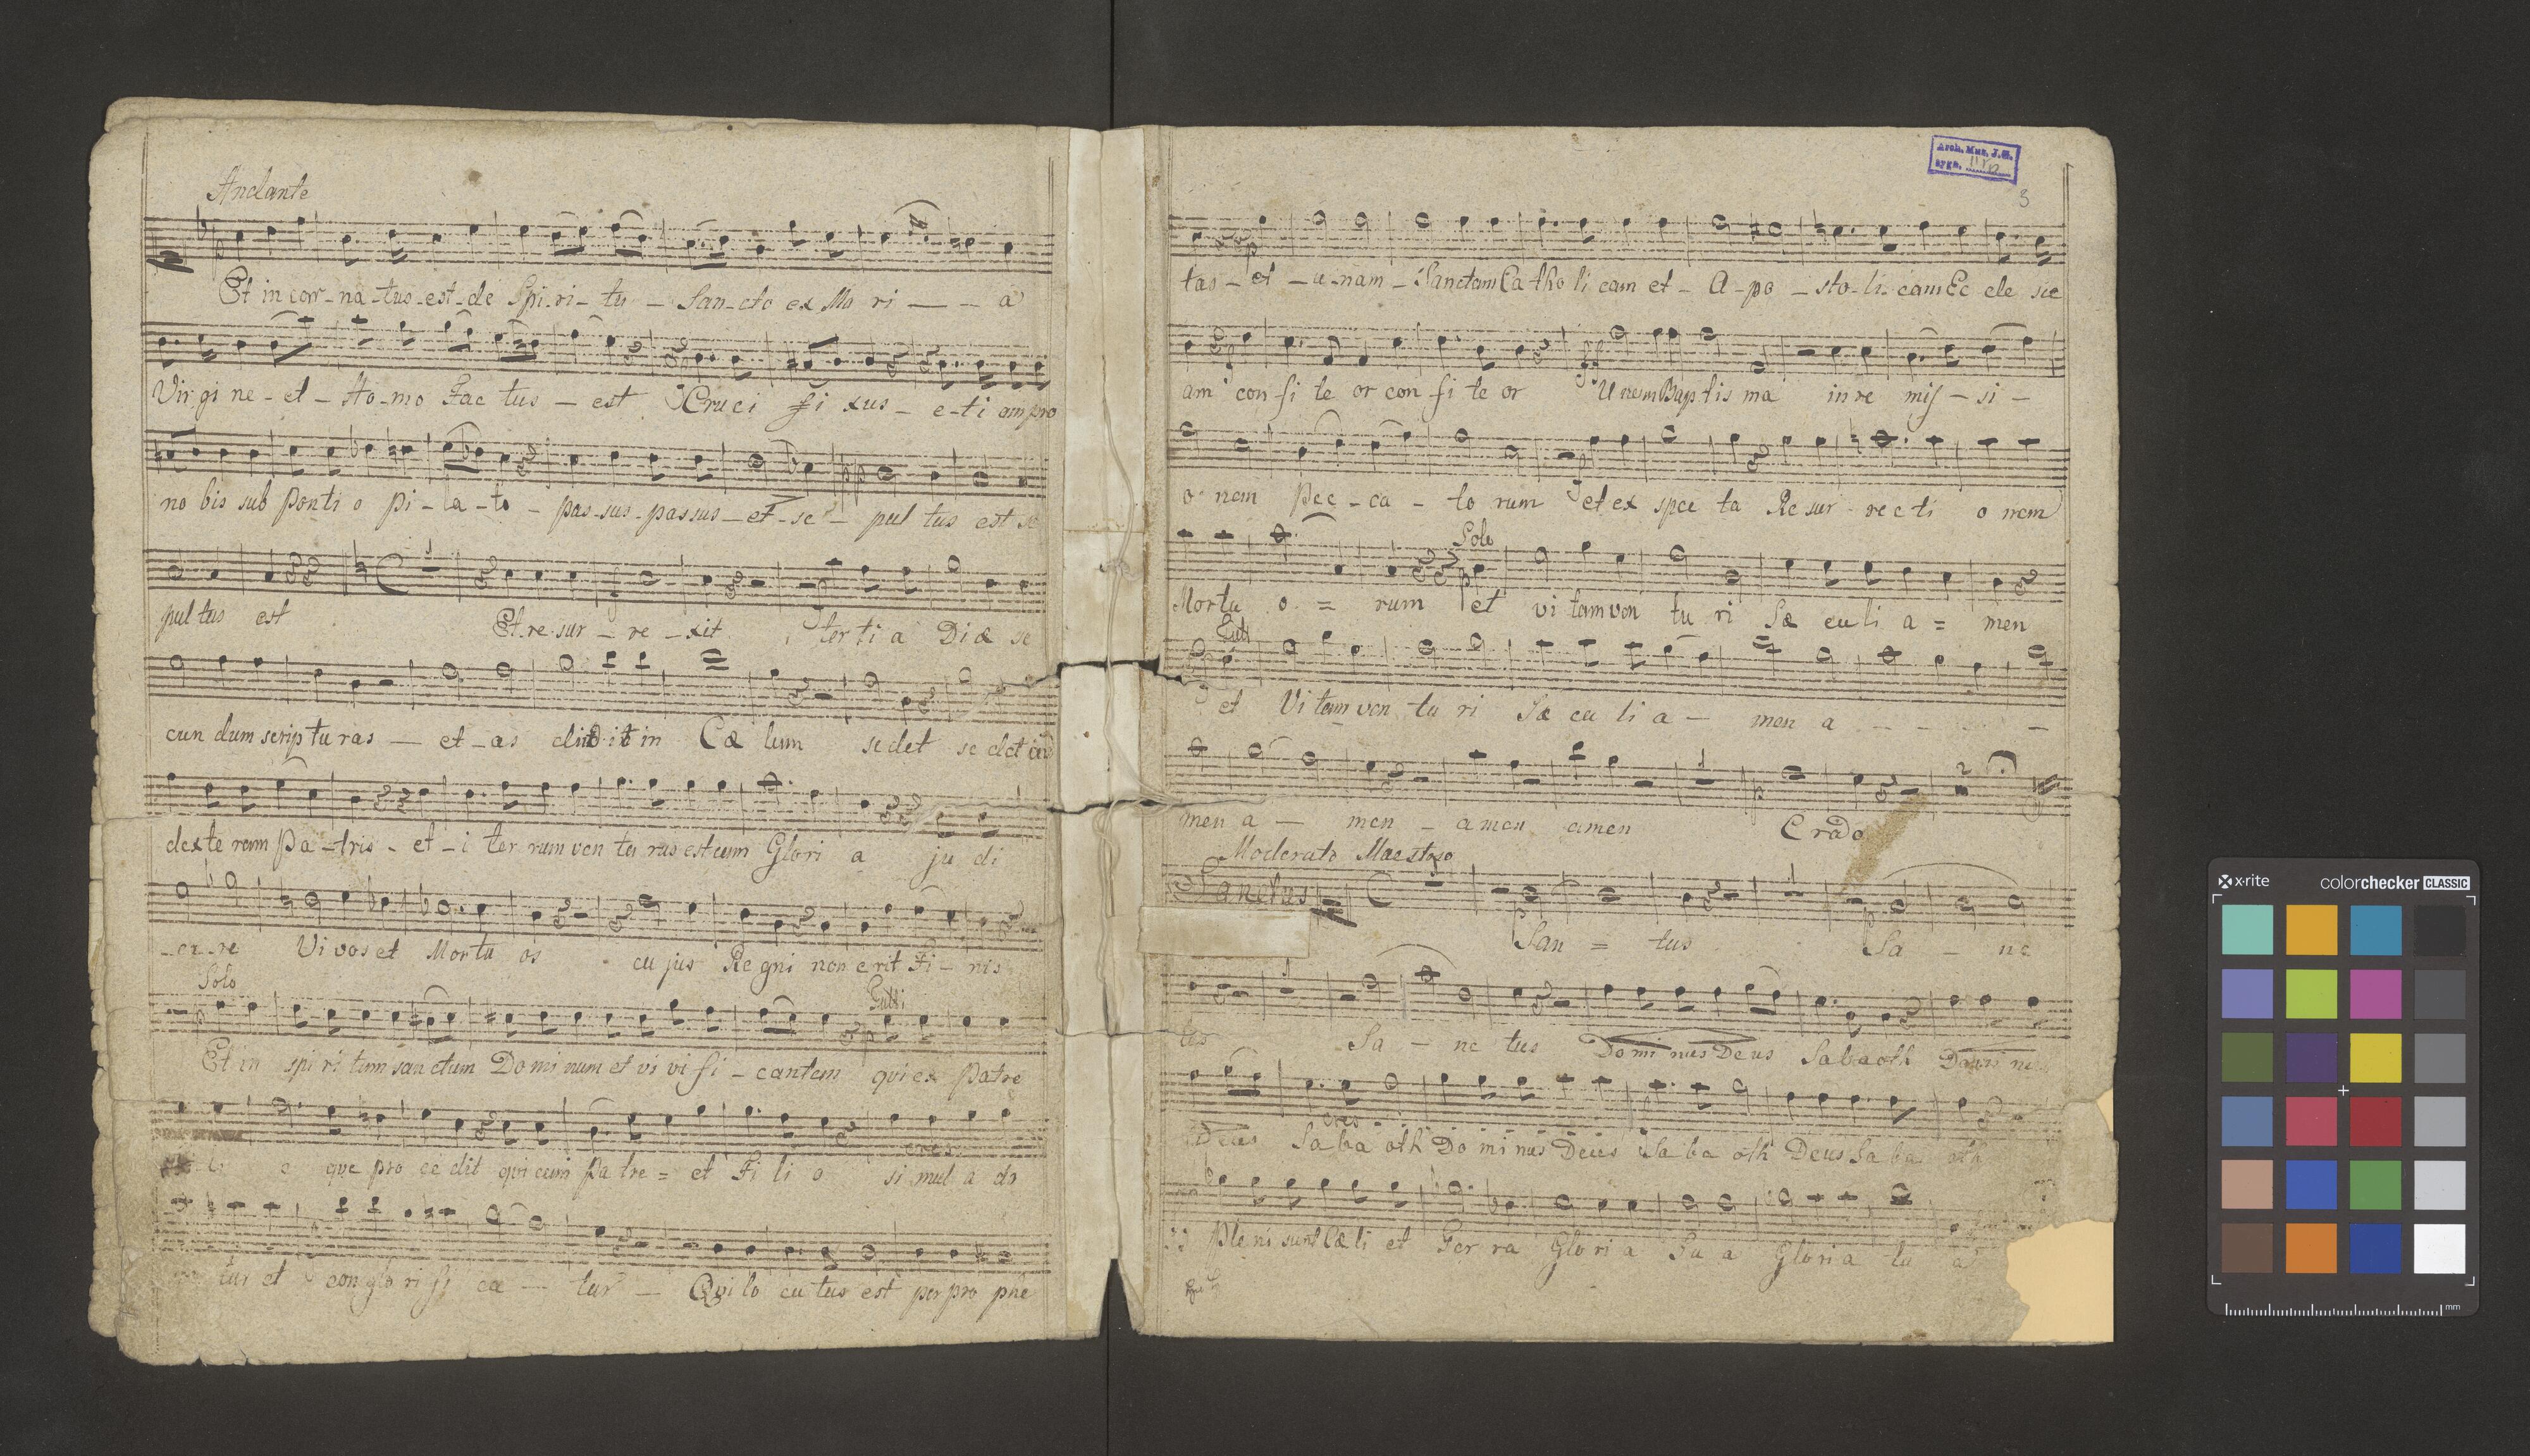 Andante
Et in car-na-tus-est-de Spi-ri-tu-San-cto ex Ma ri - - - a
Vir gi ne-et-Ho-mo Fac tus-est Cruci fi xus-e-ti am pro
no bis sub Ponti o Pi-la-to-pas-sus-passus-et-se-pul tus est se
pul tus est Et-re-sur-re-xit ter ti a Di æ se
cun dum scrip tu ras-et-as in Cæ lum sedet se det
dexte ram Pa-tris-et-i ter rum ven tu rus est cum Glori a ju di
ca-re Vi vos et Mortu os cu jus Re gni non erit Fi-nis
Solo
Tutti
Et in spi ri tum san ctum Do mi num et vi vi fi-cantem qui ex Patre
cres
li o que pro ce dit qui cum Pa tre = et Fi li o si mul a do
tur et con glo ri fi ca-tur-Qui lo cu tus est per pro phe
Arch. Muz. J. G.
sygn.
3
tas-et-u-nam-Sanctam Ca tho li cam et-A-po-sto-li-cam Ec cle sie
am con fi te or con fi te or Unum Bap tis ma in re mis-si-
o nem Pec-ca-to rum et ex spec ta Re sur-rec ti o nem
Solo
Mortu o = rum et vi tam ven tu ri Sæ cu li a = men
Tutti
et Vi tam ven tu ri Sæ cu li a-men a - - - -
men a-men-amen amen Credo
Moderato Maestoso
Sanctus
San = tus Sa-nc
tus Sa-nc tus Do mi nus Deus Sabaoth Domi nus
cres
Deus Sa ba oth Do mi nus Deus Sa ba oth Deus Sa ba oth
Ple ni sunt Cæli et Ter ra Glo ri a Tu a Glori a tu a
x-rite colorchecker CLASSIC
mm